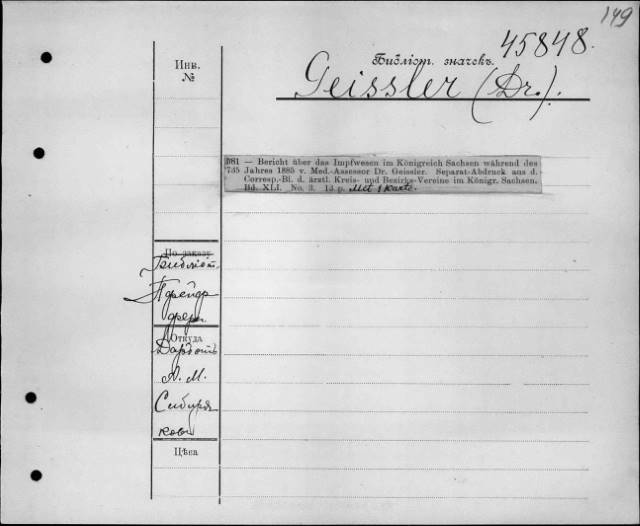 149
45848.
Инв.
№
Библіот. значекъ.
Geissler (Dr.).
981 — Bericht über das Impfwesen im Königreich Sachsen während des
735 Jahres 1885 v. Med.-Assessor Dr. Geissler. Separat-Abdruck aus d.
Corresp.-Bl. d. ärztl. Kreis- und Bezirks-Vereine im Königr. Sachsen.
Bd. XLI. No. 3. 13 p. Mit 1 Karte.
По заказу
Библіот.
Откуда
Даръ отъ
А. М.
Сибиря
кова
Цѣна